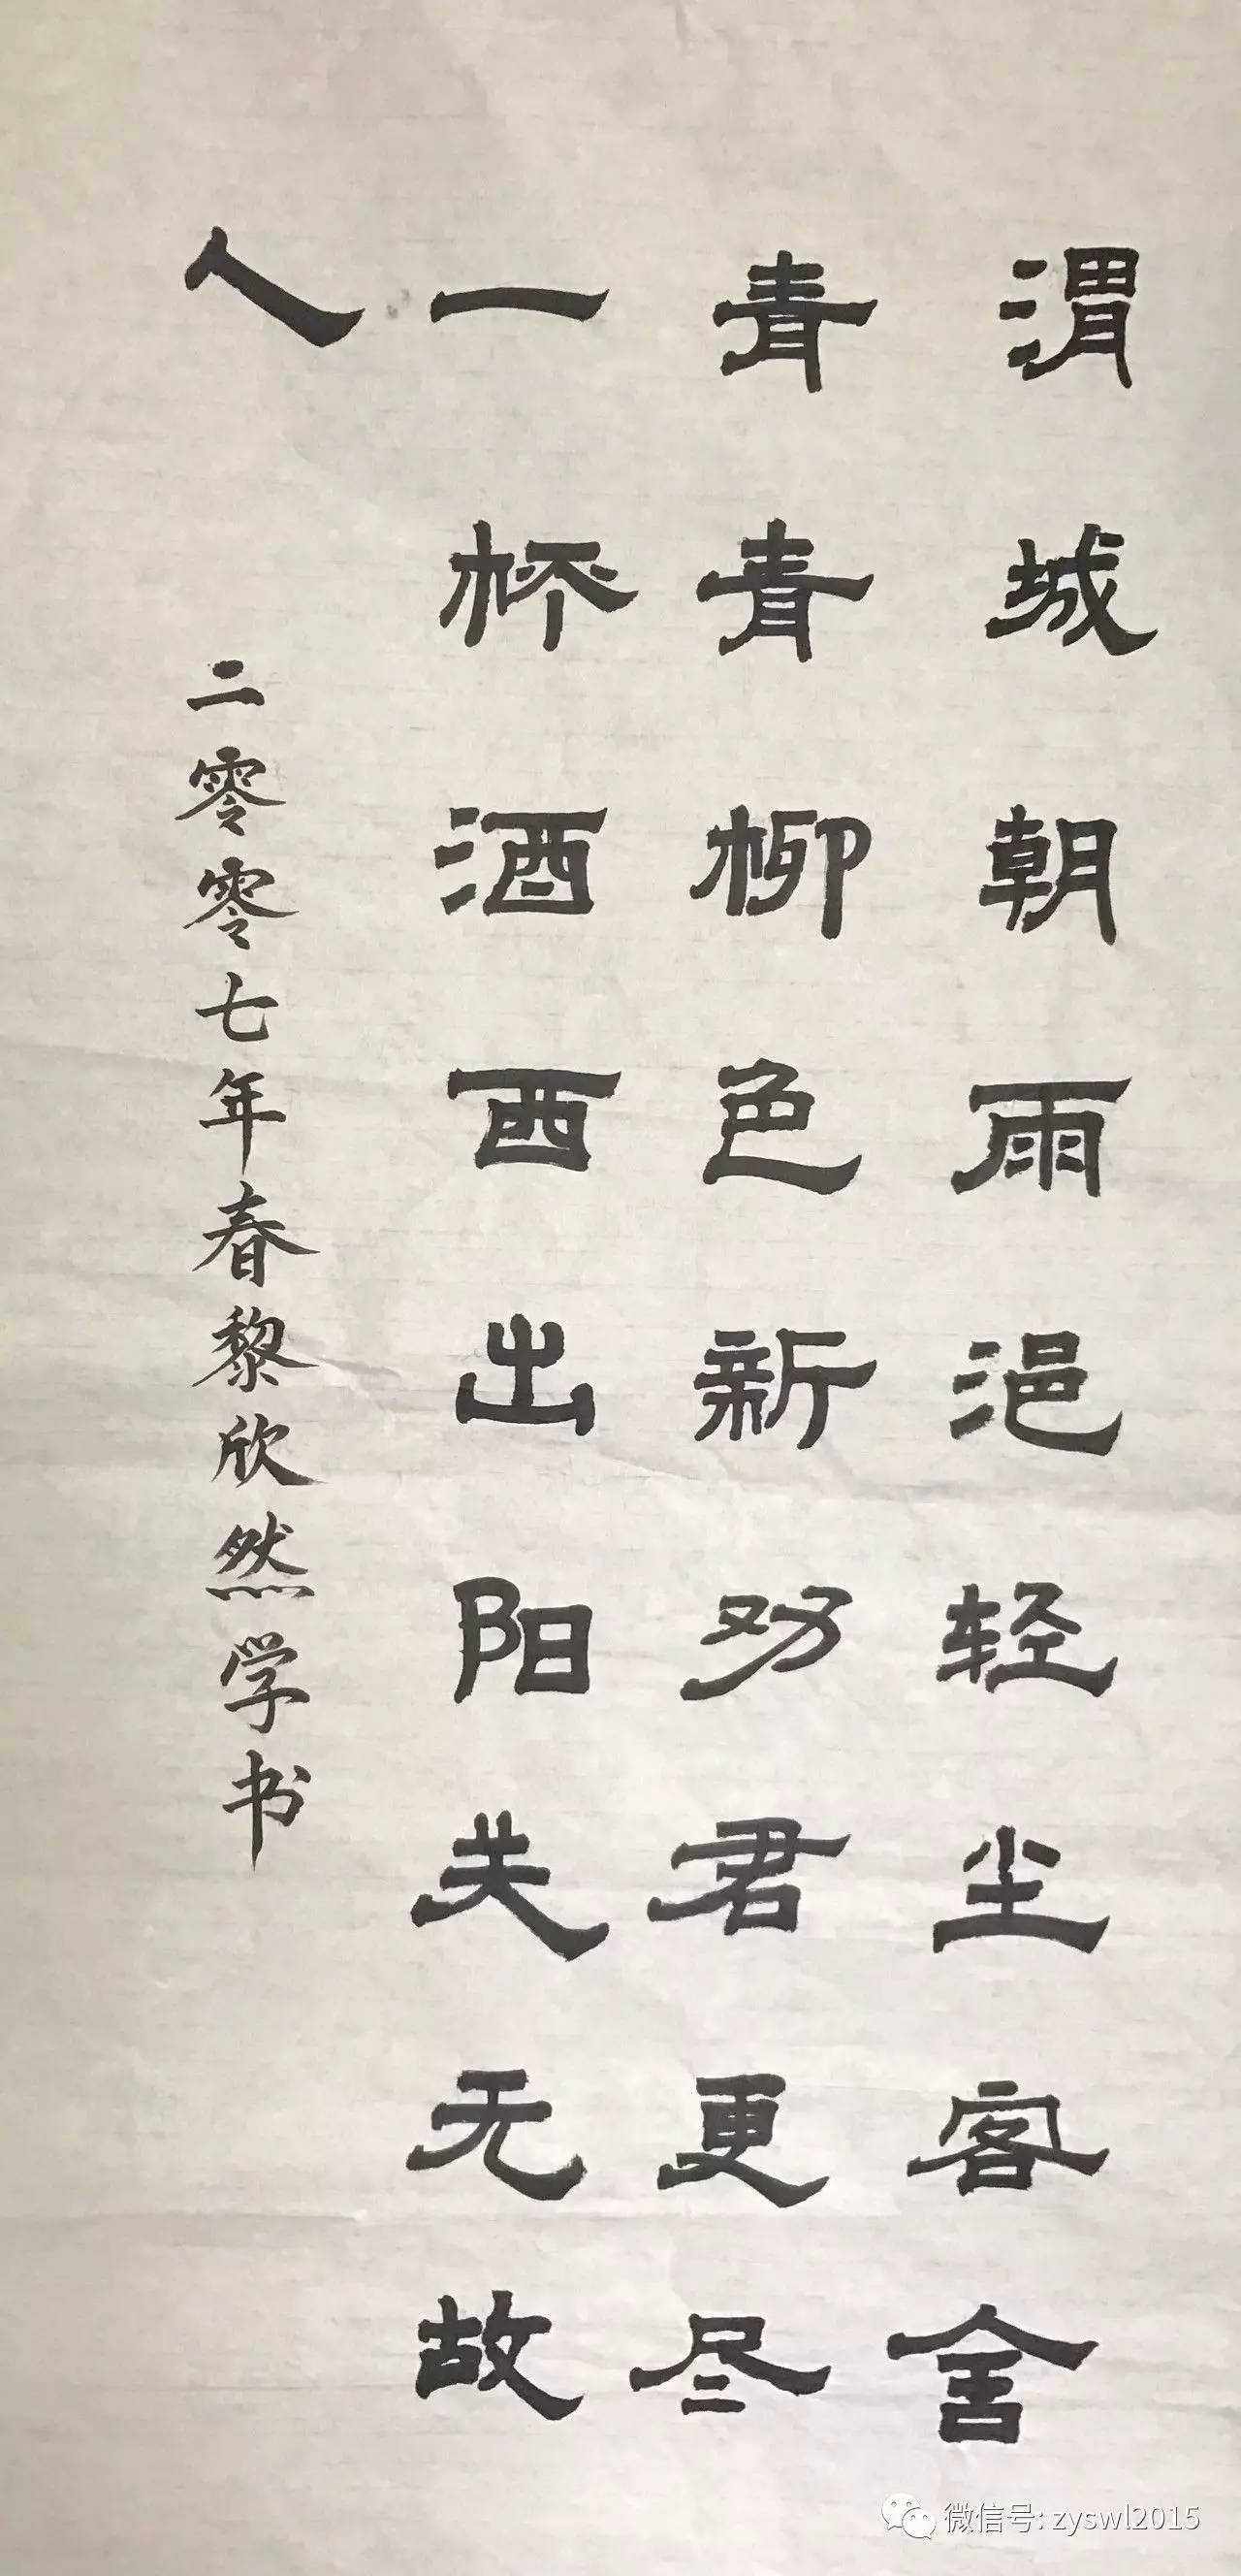 渭城朝雨浥轻尘客舍
青青柳色新劝君更尽
一杯酒西出阳关无故
人
二零零七年春黎欣然学书
微信号: zyswl2015